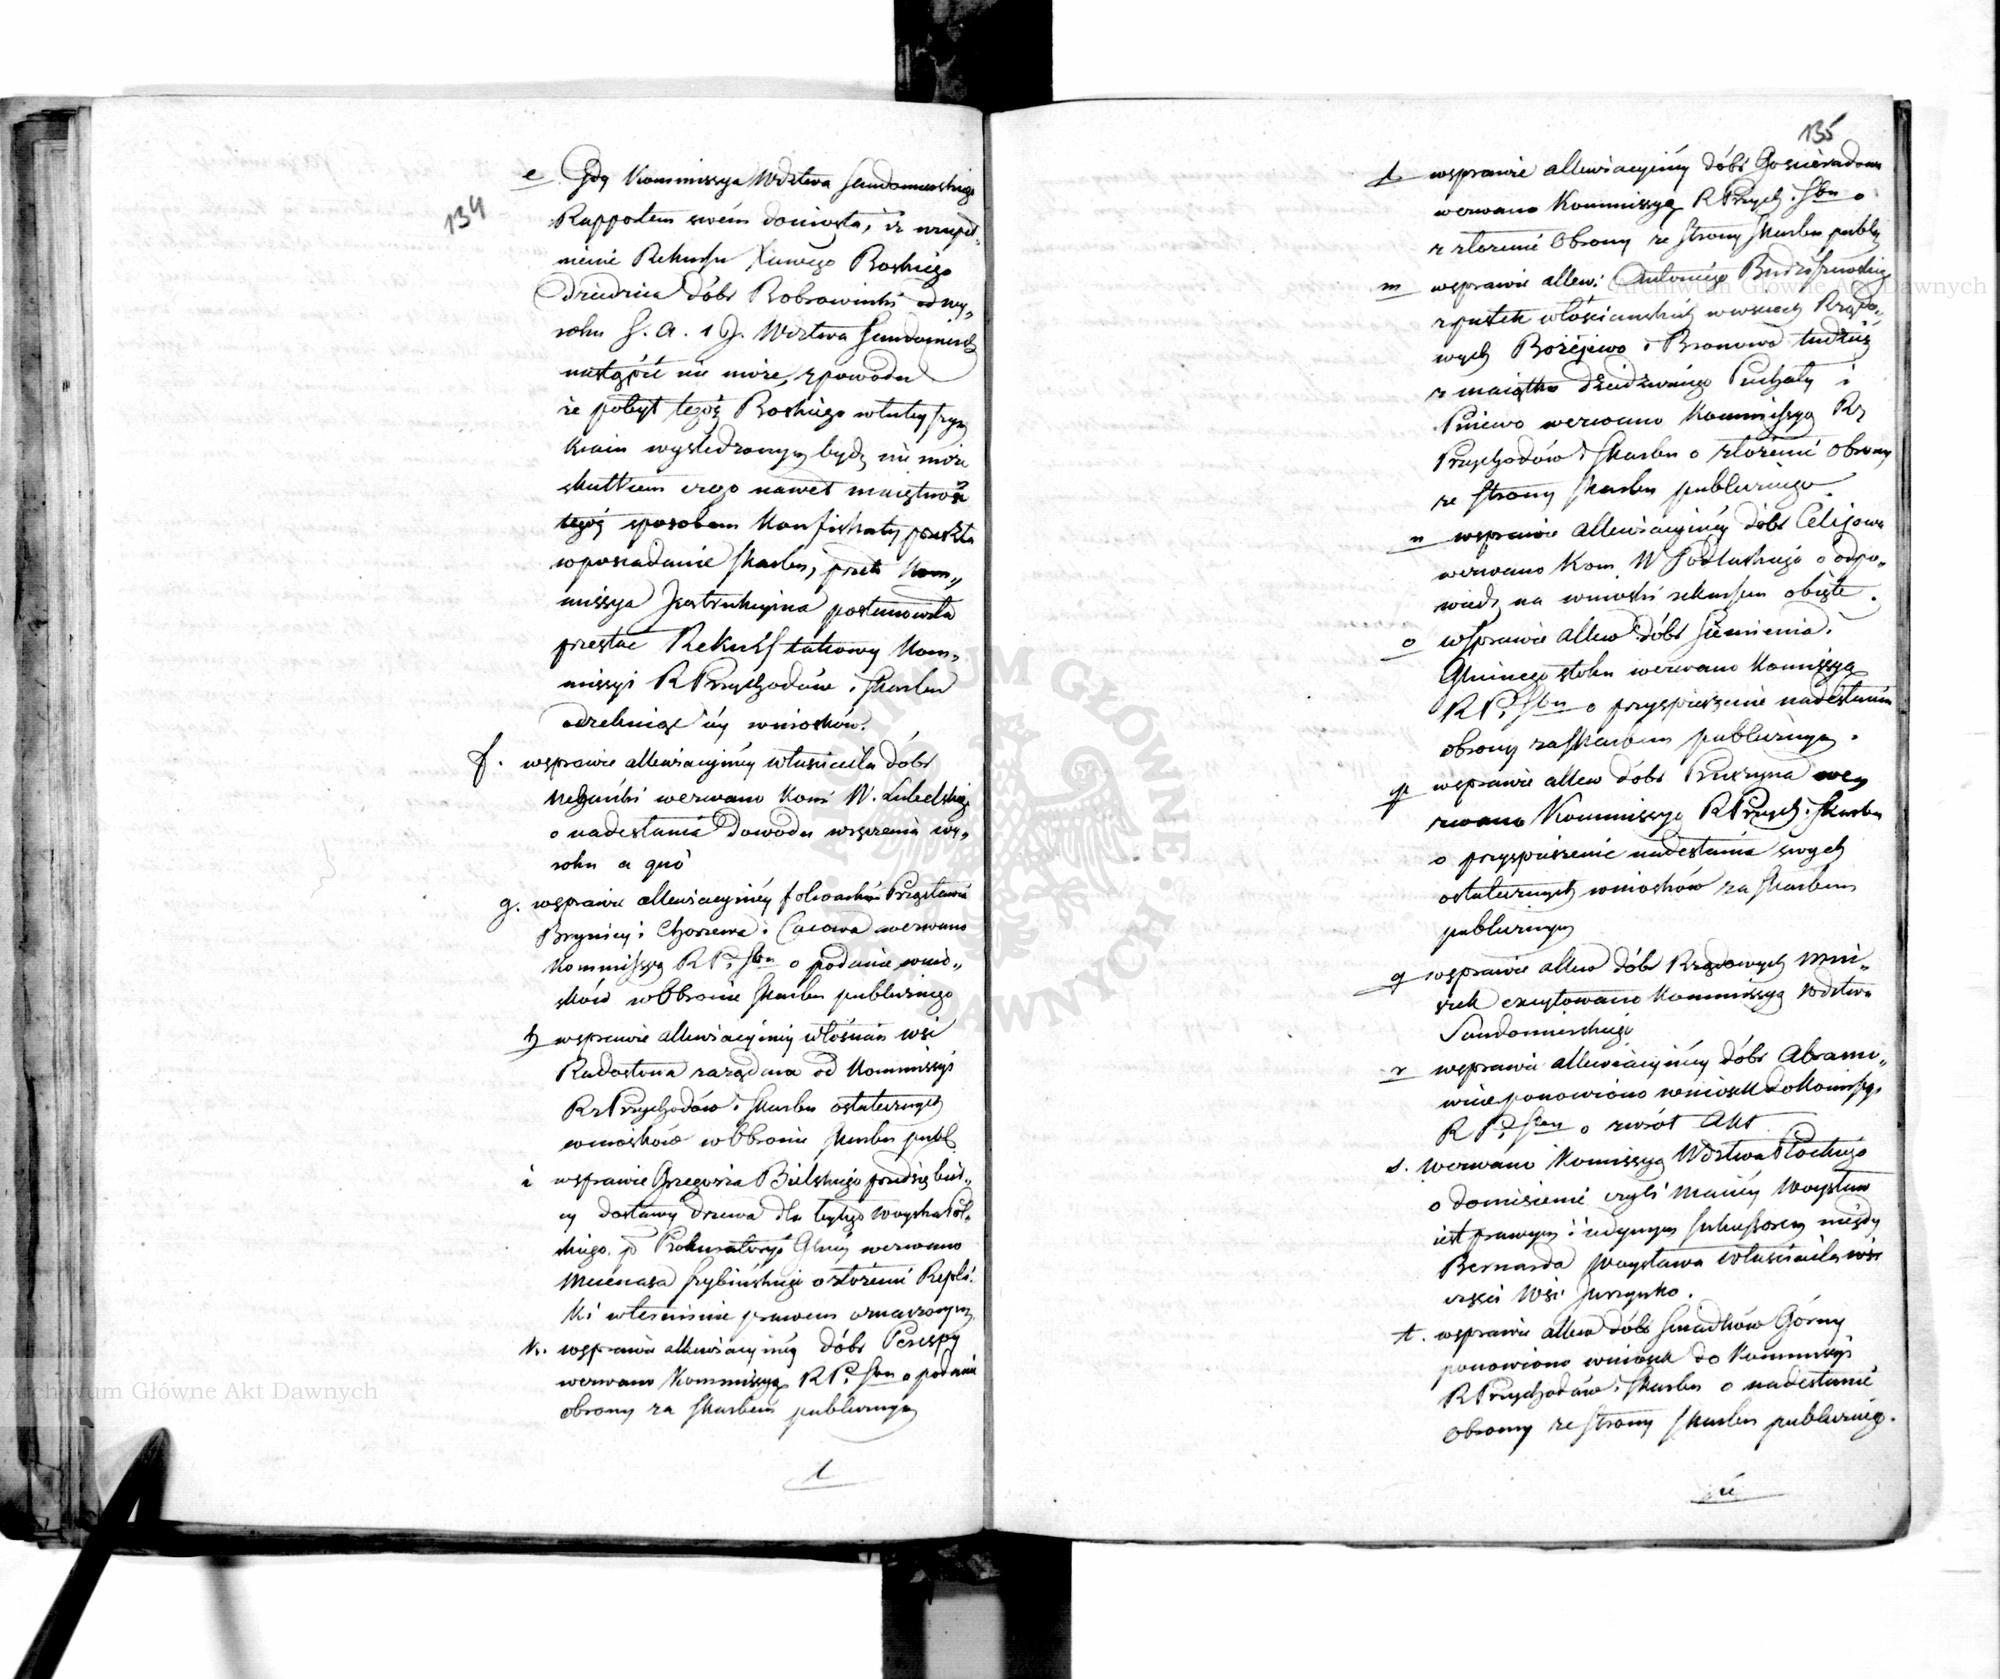 134
e Gdy Kommissya Wdztwa Sandomierskiego
Rapportem swém doniosła, iż uzupeł-
nienie Rekursu Xawego Boskiego
Dziedzica dóbr Bobrowniki od wy-
roku S. A. i J. Wdztwa Sandomiersk
nastąpić nie może, z powodu
że pobyt tegoż Boskiego w tuteyszym
kraiu wyśledzonym bydź nie może
skutkiem czego nawet maiętność
tegoż sposobem Konfiskaty przeszła
w posiadanie Skarbu, przeto Kom-
missya Instrukcyina postanowiła
przesłać Rekurs takowy Kom-
missyi R Przychodów i Skarbu
odzebrując iey wniosków.
f. w sprawie allewiacyinéy właściciela dóbr
wezwano Kom W. Lubelskiego
o nadesłanie Dowodu wręczenia wy-
roku a quo
g. w sprawie allewiacyinéy folwarków Przysławia
Brynicy i Chorzewa i Cacowa wezwano
Kommissyą R P. i Sbu o podanie wnio-
sków w Obronie Skarbu publicznego
h w sprawie allewiacyinéy włościan wsi
Radostowa zażądano od Kommissyi
Rz Przychodów i Skarbu ostatecznych
wniosków w Obronie Skarbu publ.
i w sprawie Grzegorza Bielskiego przedsiębier-
cy dostawy drzewa dla byłego woyska Pol-
skiego p Prokuratoryi Glney wezwano
Mecenasa Szybińskiego o złożenie Repli-
ki w terminie prawem oznaczonym
k. w sprawie allewiacyinéy dóbr Perespy
wezwano Kommissyą R P. i Sbu o podanie
obrony za Skarbem publicznym
l
135
l w sprawie allewiacyinéy dóbr Gościeradowa
wezwano Kommissyą R Przych. i Sbu o
z złożenie Obrony ze strony Skarbu publ.
m w sprawie allew: Antoniego Budziszewskiego
z pustek włościańskich w wsiach Rządo-
wych Bożejewo i Bronowo tudzież
z maiątku dziedzicznego Puchały i
Pniewo wezwano Kommissyą Rz
Przychodów i Skarbu o złożenie Obrony
ze strony Skarbu publicznego
n w sprawie allewiacyinéy dóbr Celejowa
wezwano Kom W Podlaskiego o odpo-
wiedź na wnioski rekursem obięte.
o w sprawie allew dóbr Siemienia i
Glinnego stoku wezwano Komissyą
R P. i Sbu o przyspieszenie nadesłania
obrony za Skarbem publicznym.
p w sprawie allew dóbr Pruszyna wez
zwano Kommissyą R Przych. i Skarbu
o przyspieszenie nadesłania swych
ostatecznych wniosków za Skarbem
publicznym
q w sprawie allew dóbr Rządowych Mni-
szek excytowano Kommissyą Wdztwa
Sandomierskiego
r w sprawie allewiacyinéy dóbr Abramo-
wice ponowiono wniosek do Komissyi
R P. i Sbu o zwrót Akt
s. wezwano Komissyą Wdztwa Płockiego
o doniesienie czyli Maciéy Woysław
iest prawym i iedynym sukcessorem niegdy
Bernarda Woysława właściciela wsi
części wsi
t. w sprawie allew dóbr Smadków Górny
ponowiono wniosek do Kommissyi
R Przychodów i Skarbu o nadesłanie
Obrony ze strony Skarbu publicznego.
u
Archiwum Główne Akt Dawnych
Archiwum Główne Akt Dawnych
ARCHIWUM GŁÓWNE AKT DAWNYCH